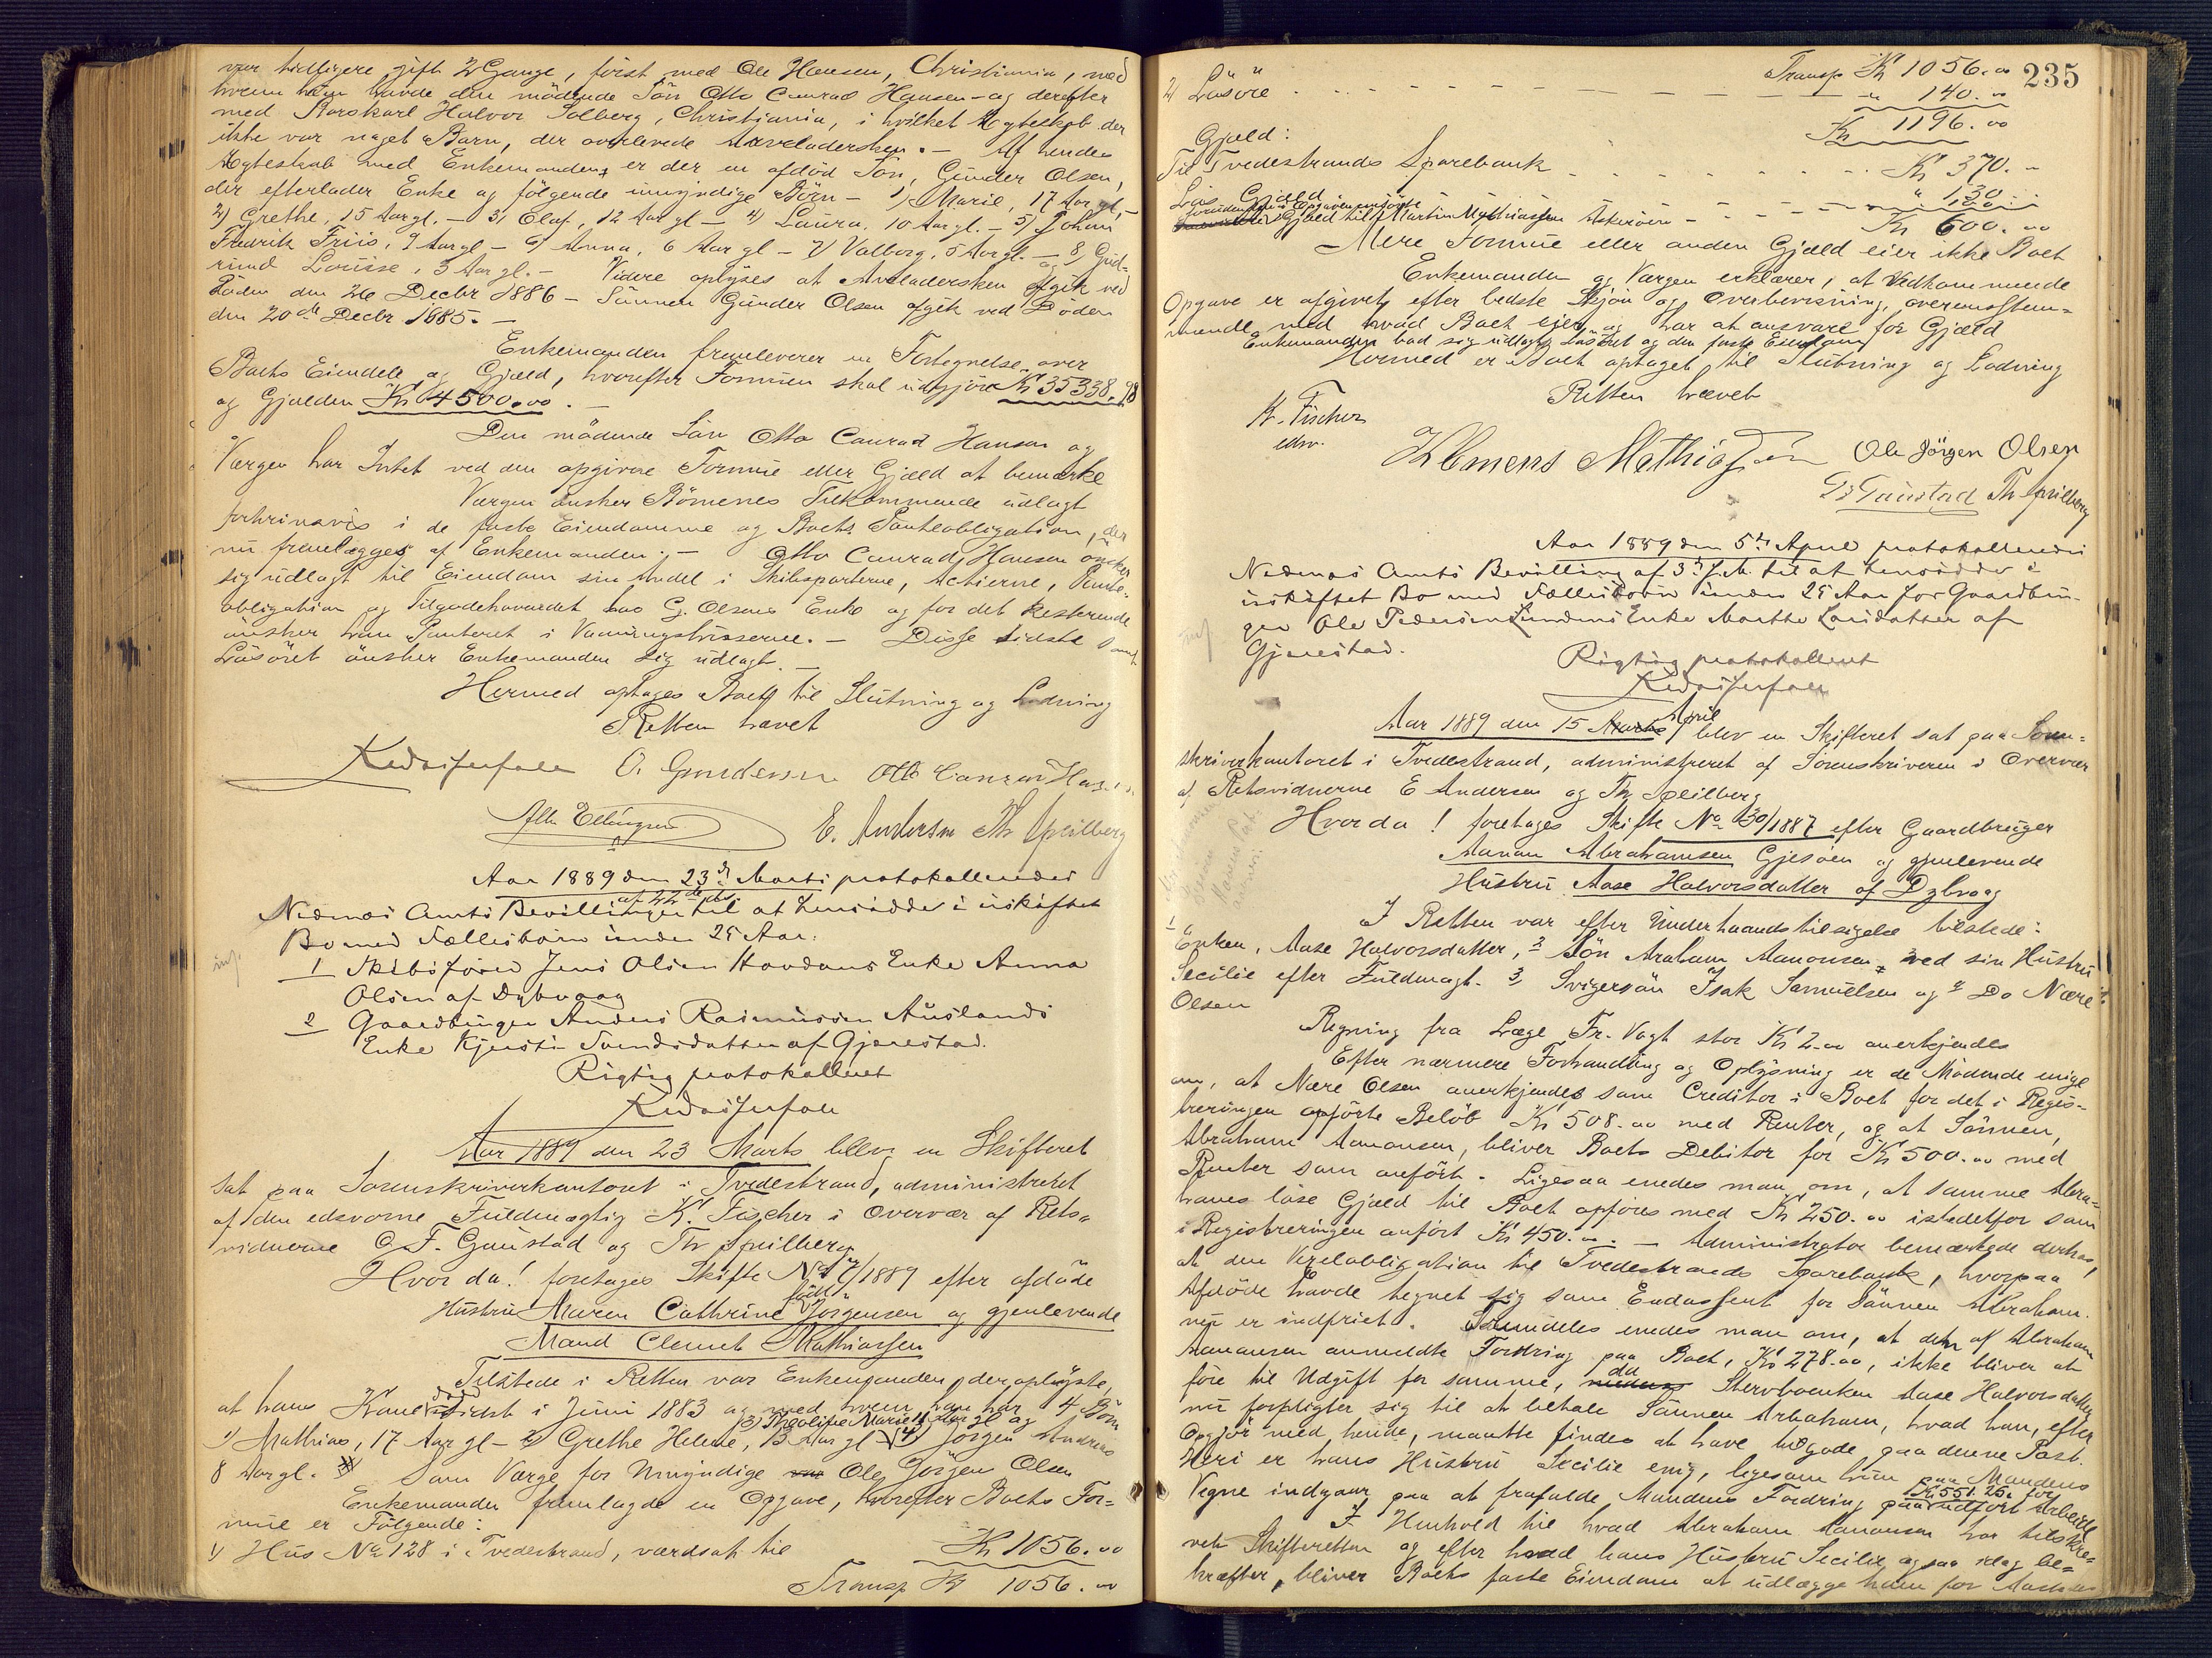 var tidligere gift 2 Gange, først med Ole Hansen, Christiania, med
hvem hun havde den mødende Søn Otto Conrad Hansen – og derefter
med Karl Halvor Solberg, Christiania, i hvilket Ægteskab der
ikke var noget Barn, der overlevede Arveladersken. – Af hendes
Ægteskab med Enkemanden er der en afdød Søn, Gunder Olsen,
der efterlader Enke og følgende umyndige Børn – 1) Marie, 17 Aar gl,
2) Grethe, 15 Aar gl. – 3) Olaf, 12 Aar gl – 4) Laura, 10 Aar gl. – 5) Johan
Fredrik Friis, 9 Aar gl – 6) Anna, 6 Aar gl – 7) Valborg, 5 Aar gl. – og 8) Gud-
rund Louise, 3 Aar gl. – Videre oplyses at Arveladersken afgik ved
Døden den 26 Decbr 1886 – Sønnen Gunder Olsen afgik ved Døden
den 20de Decbr 1885. –
Enkemanden fremleverer en Fortegnelse over
Boets Eiendele og Gjæld, hvorefter Formuen skal udgjøre Kr 35338.98
og Gjælden Kr 4500.00. –
Den mødende Søn Otto Conrad Hansen og
Værgen har Intet ved den opgivne Formue eller Gjæld at bemærke
Værgen ønsker Børnenes Tilkommende udlagt
fortrinsvis i de faste Eiendomme og Boets Panteobligation, der
nu fremlægges af Enkemanden. – Otto Conrad Hansen ønsker
sig udlagt til Eiendom sin Andel i Skibsparterne, Actierne, Pante-
obligation og Tilgodehavendet hos G. Olsens Enke og for det resterende
ønsker han Panteret i Vaaningshusene. – Disse sidste samt
Løsøret ønsker Enkemanden sig udlagt. –
Hermed optages Boet til Slutning og Lodning
Retten hævet
O. Gundersen Otto Conrad Hansen
E. Andersen Th Spilberg
Aar 1889 den 23de Marts protokolleredes
Nedenæs Amts Bevillinger af 22de ds. til at hensidde i uskiftet
Bo med Fællesbørn under 25 Aar:
1 Skibsfører Jens Olsen Enke Anna
Olsen af Dybvaag
2 Gaardbruger Anders Rasmussen Auslands
Enke Kjersti Svendsdatter af Gjerestad.
Rigtig protokolleret
Aar 1889 den 23 Marts blev en Skifteret
sat paa Sorenskriverkontoret i Tvedestrand, administreret
af den edsvorne Fuldmægtig K. Fischer i Overvær af Rets-
vidnerne O. F. Gaustad og Th Spilberg
Hvor da! foretages Skifte No 17/1889 efter afdøde
Hustru Maren Cathrine født Jørgensen og gjenlevende
Mand Clemet Mathiassen
Tilstede i Retten var Enkemanden, der oplyste,
at hans Kone døde sidst i Juni 1883 og med hvem han har 4 Børn
1) Mathias, 17 Aar gl – 2) Grethe Helene, 13 Aar gl – 3) Marie 11 Aar gl og 4) Jørgen Andreas
8 Aar gl. Som Værge for Umyndige Ole Jørgen Olsen
Enkemanden fremlagde en Opgave, hvorefter Boets For-
mue er Følgende:
1) Hus No 128 i Tvedestrand, værdsat til Kr 1056.00
Transp Kr 1056.00
235
Transp Kr 1056.00
2) Løsøre " 140.00
Kr 1196.00
Gjæld:
Til Tvedestrands Sparebank Kr 370.–
Løs Gjæld " 130.–
Gjæld til Martin Mathiassen Askerøen " 100.–
Kr 600.00
Mere Formue eller anden Gjæld eier ikke Boet
Enkemanden og Værgen erklærer, at Vedkommende
Opgave er afgivet efter bedste Skjøn og Overbevisning, overensstem-
mende med hvad Boet ejer og har at ansvare for Gjæld
Enkemanden bad sig udlagt Løsøret og den faste Eiendom
Hermed er Boet optaget til Slutning og Lodning
Retten hævet
K. Fischer
edsv.
Klemens Mathiassen Ole Jörgen Olsen
Gaustad Th Spilberg
Aar 1889 den 5te April protokolleredes
Nedenæs Amts Bevilling af 3de d.M. til at hensidde i
uskiftet Bo med Fællesbørn under 25 Aar for Gaardbru-
ger Ole Pedersen Lundens Enke Marthe Larsdatter af
Gjerestad.
Rigtig protokolleret
Aar 1889 den 15 April blev en Skifteret sat paa Soren-
skriverkontoret i Tvedestrand, administreret af Sorenskriveren i Overvær
af Retsvidnerne E Andersen og Th Spilberg
Hvor da! foretages Skifte No 30/1887 efter Gaardbruger
Aanon Abrahamsen Gjesøen og gjenlevende
Hustru Aase Halvorsdatter af Dybvaag
I Retten var efter Underhaandstilsigelse tilstede:
1 Enken, Aase Halvorsdatter, 2 Søn Abraham Aanonsen ved sin Hustru
Secilie efter Fuldmagt. 3 Svigersøn Isak Samuelsen og 4 Do Nære
Olsen
Regning fra Læge Fr. Vogt stor Kr 2.00 anerkjendes
Efter nærmere Forhandling og Oplysning er de Mødende enige
om, at Nære Olsen anerkjendes som Creditor i Boet for det i Regis-
treringen opførte Beløb Kr 508.00 med Renter, og at Sønnen,
Abraham Aanonsen, bliver Boets Debitor for Kr 500.00 med
Renter som anført. Ligesaa enedes man om, at samme Abra-
hams løse Gjæld til Boet opføres med Kr 250.00 istedetfor som
i Registreringen anført Kr 450.00. – Administrator bemærkede derhos,
at den Vexelobligation til Tvedestrands Sparebank, hvorpaa
Afdøde havde tegnet sig som Endossent for Sønnen Abraham
nu er indfriet. Saaledes enedes man om, at den af Abraham
Aanonsen anmeldte Fordring paa Boet, Kr 278.00, ikke bliver at
føre til Udgift for samme, da Stervboenken Aase Halvorsdatter
nu forpligter sig til at betale Sønnen Abraham, hvad han, efter
Opgjør med hende, maatte findes at have tilgode paa denne Post.
Heri er hans Hustru Secilie enig, ligesom hun paa Mandens
Vegne indgaar paa at frafalde Mandens Fordring paa Kr 551.25 for udført Arbeide
I Henhold til hvad Abraham Aanonsen har tilskre-
vet Skifteretten og efter hvad hans Hustru Secilie ogsaa idag be-
kræfter, bliver Boets faste Eiendom at udlægge ham for